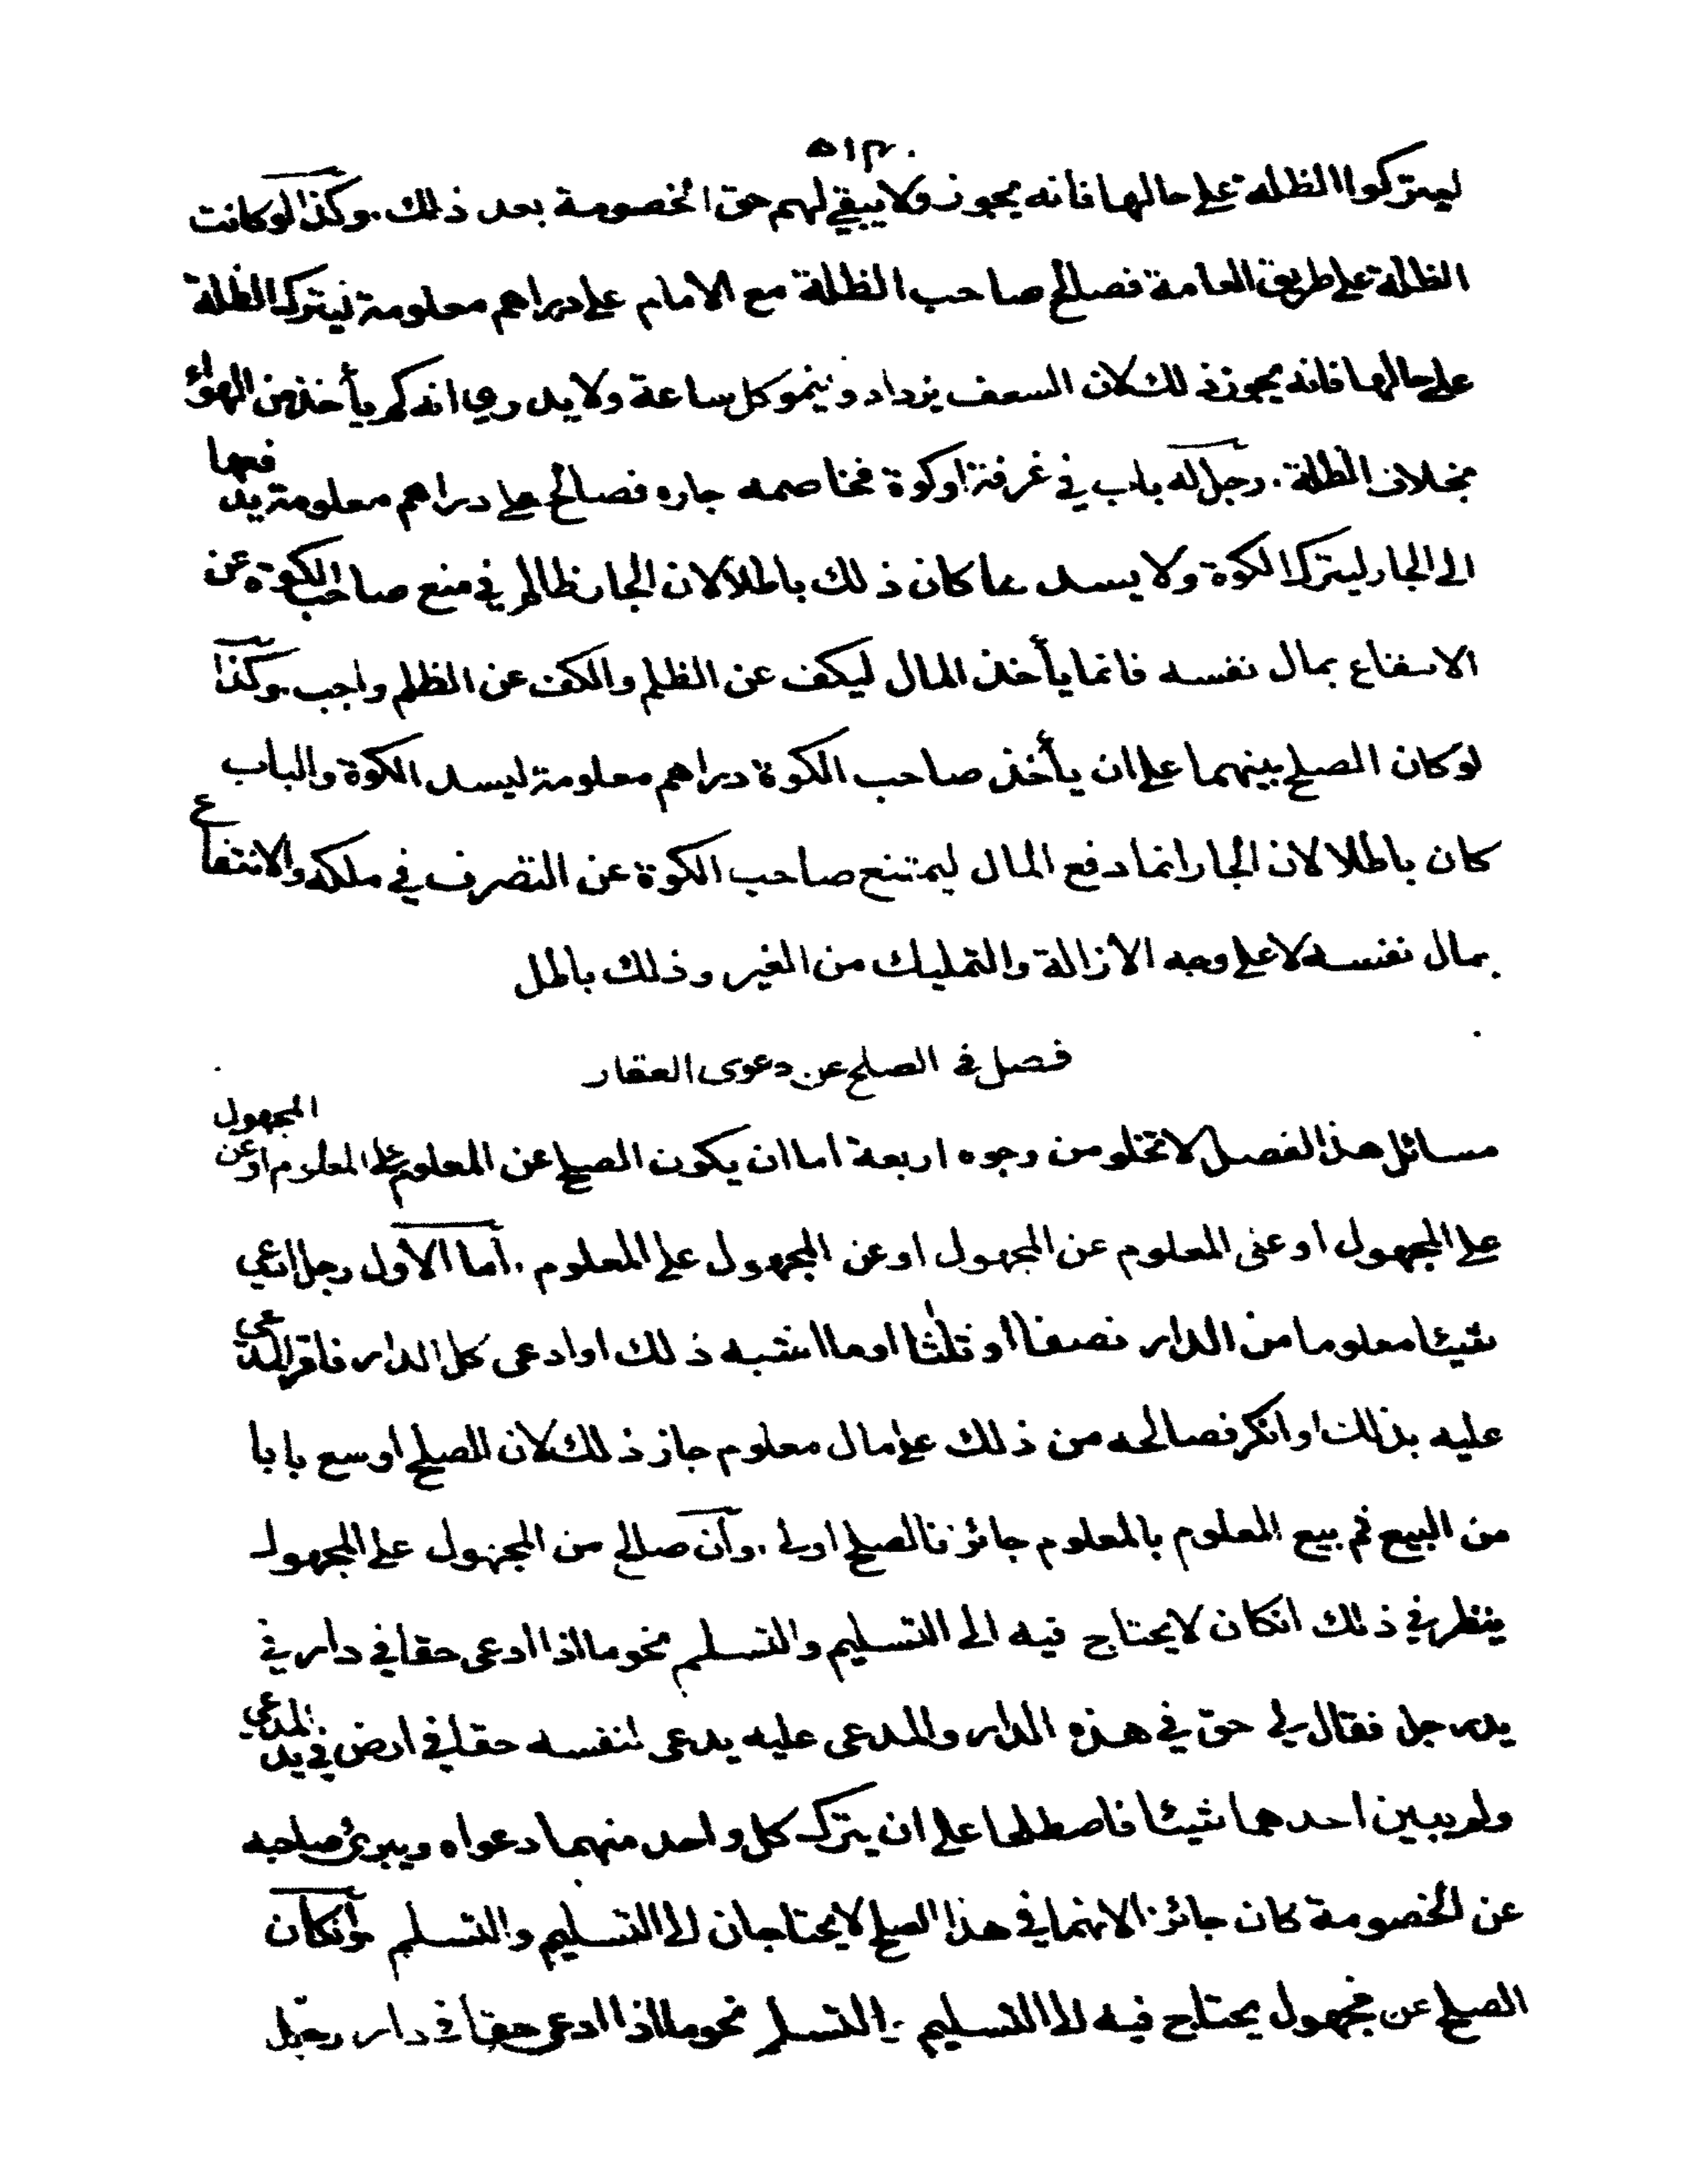 ٥١٣
ليتركوا الظلة على حالها فانه يجوز ولا يبقى لهم حق الخصومة بعد ذلك. وكذا لو كانت
الظلة على طريق العامة فصالح صاحب الظلة مع الامام على دراهم معلومة ليترك الظلة
على حالها فانه يجوز ذلك لان السعف يزداد وينمو كل ساعة ولا يدري انه كم يأخذ من الهواء
بخلاف الظلة. رجل له باب في غرفة او كوة فخاصمه جاره فصالح على دراهم معلومة يدفعها
الى الجار ليترك الكوة ولا يسد ما كان ذلك باطلا لان الجار ظالم في منع صاحب الكوة عن
الانتفاع بمال نفسه فانما يأخذ المال ليكف عن الظلم والكف عن الظلم واجب. وكذا
لو كان الصلح بينهما على ان يأخذ صاحب الكوة دراهم معلومة ليسد الكوة والباب
كان باطلا لان الجار انما دفع المال ليمتنع صاحب الكوة عن التصرف في ملكه والانتفاع
بمال نفسه لا على وجه الازالة والتمليك من الغير وذلك باطل
فصل في الصلح عن دعوى العقار
مسائل هذا الفصل لا تخلو من وجوه اربعة اما ان يكون الصلح عن المعلوم على المعلوم او عن المجهول
على المجهول او عن المعلوم عن المجهول او عن المجهول على المعلوم. أما الأول رجل ادعى
شيئا معلوما من الدار نصفا او ثلثا او ما اشبه ذلك او ادعى كل الدار فاقر المدعى
عليه بذلك او انكر فصالحه من ذلك على مال معلوم جاز ذلك لان الصلح اوسع بابا
من البيع ثم بيع المعلوم بالمعلوم جائز فالصلح اولى. وان صالح من المجهول على المجهول
ينظر في ذلك انكان لا يحتاج فيه الى التسليم والتسلم نحو ما اذا ادعى حقا في دار في
يد رجل فقال لي حق في هذه الدار والمدعى عليه يدعى لنفسه حقا في ارض في يد المدعى
ولم يبين احدهما شيئا فاصطلحا على ان يترك كل واحد منهما دعواه ويبرئ صاحبه
عن الخصومة كان جائزا لانهما في هذا الصلح لا يحتاجان الى التسليم والتسلم وانكان
الصلح عن مجهول يحتاج فيه الى التسليم والتسلم نحو ما اذا ادعى حقا في دار رجل